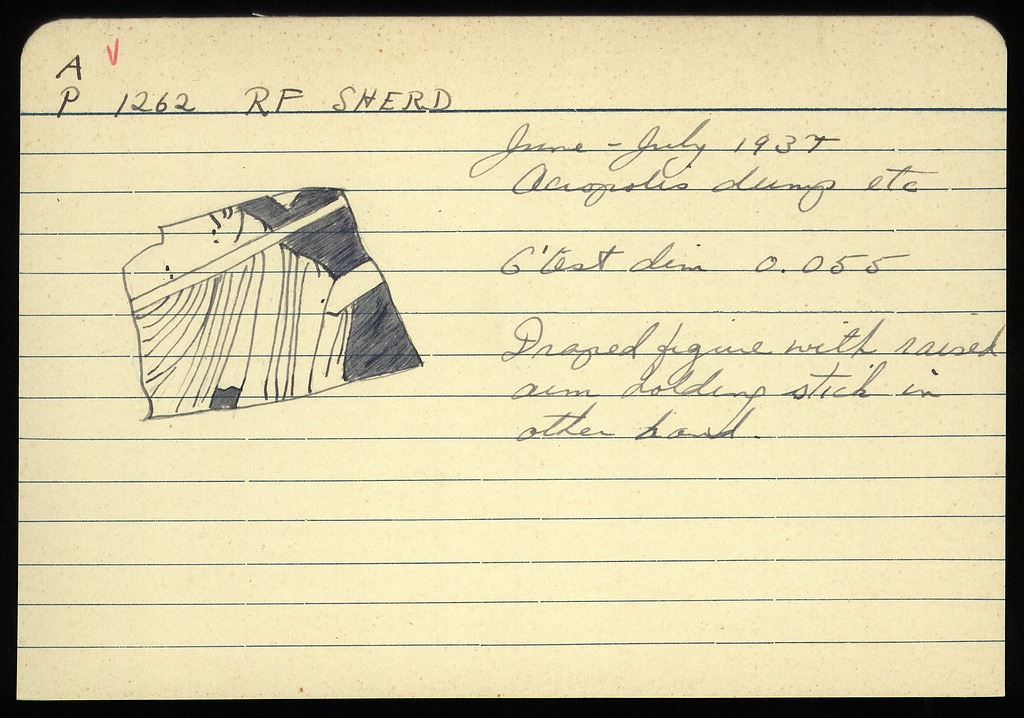 A V
P 1262 RF SHERD
June - July 1937
Acropolis dump etc
G'test dim 0.055
Draped figure with raised
arm holding stick in
other hand.